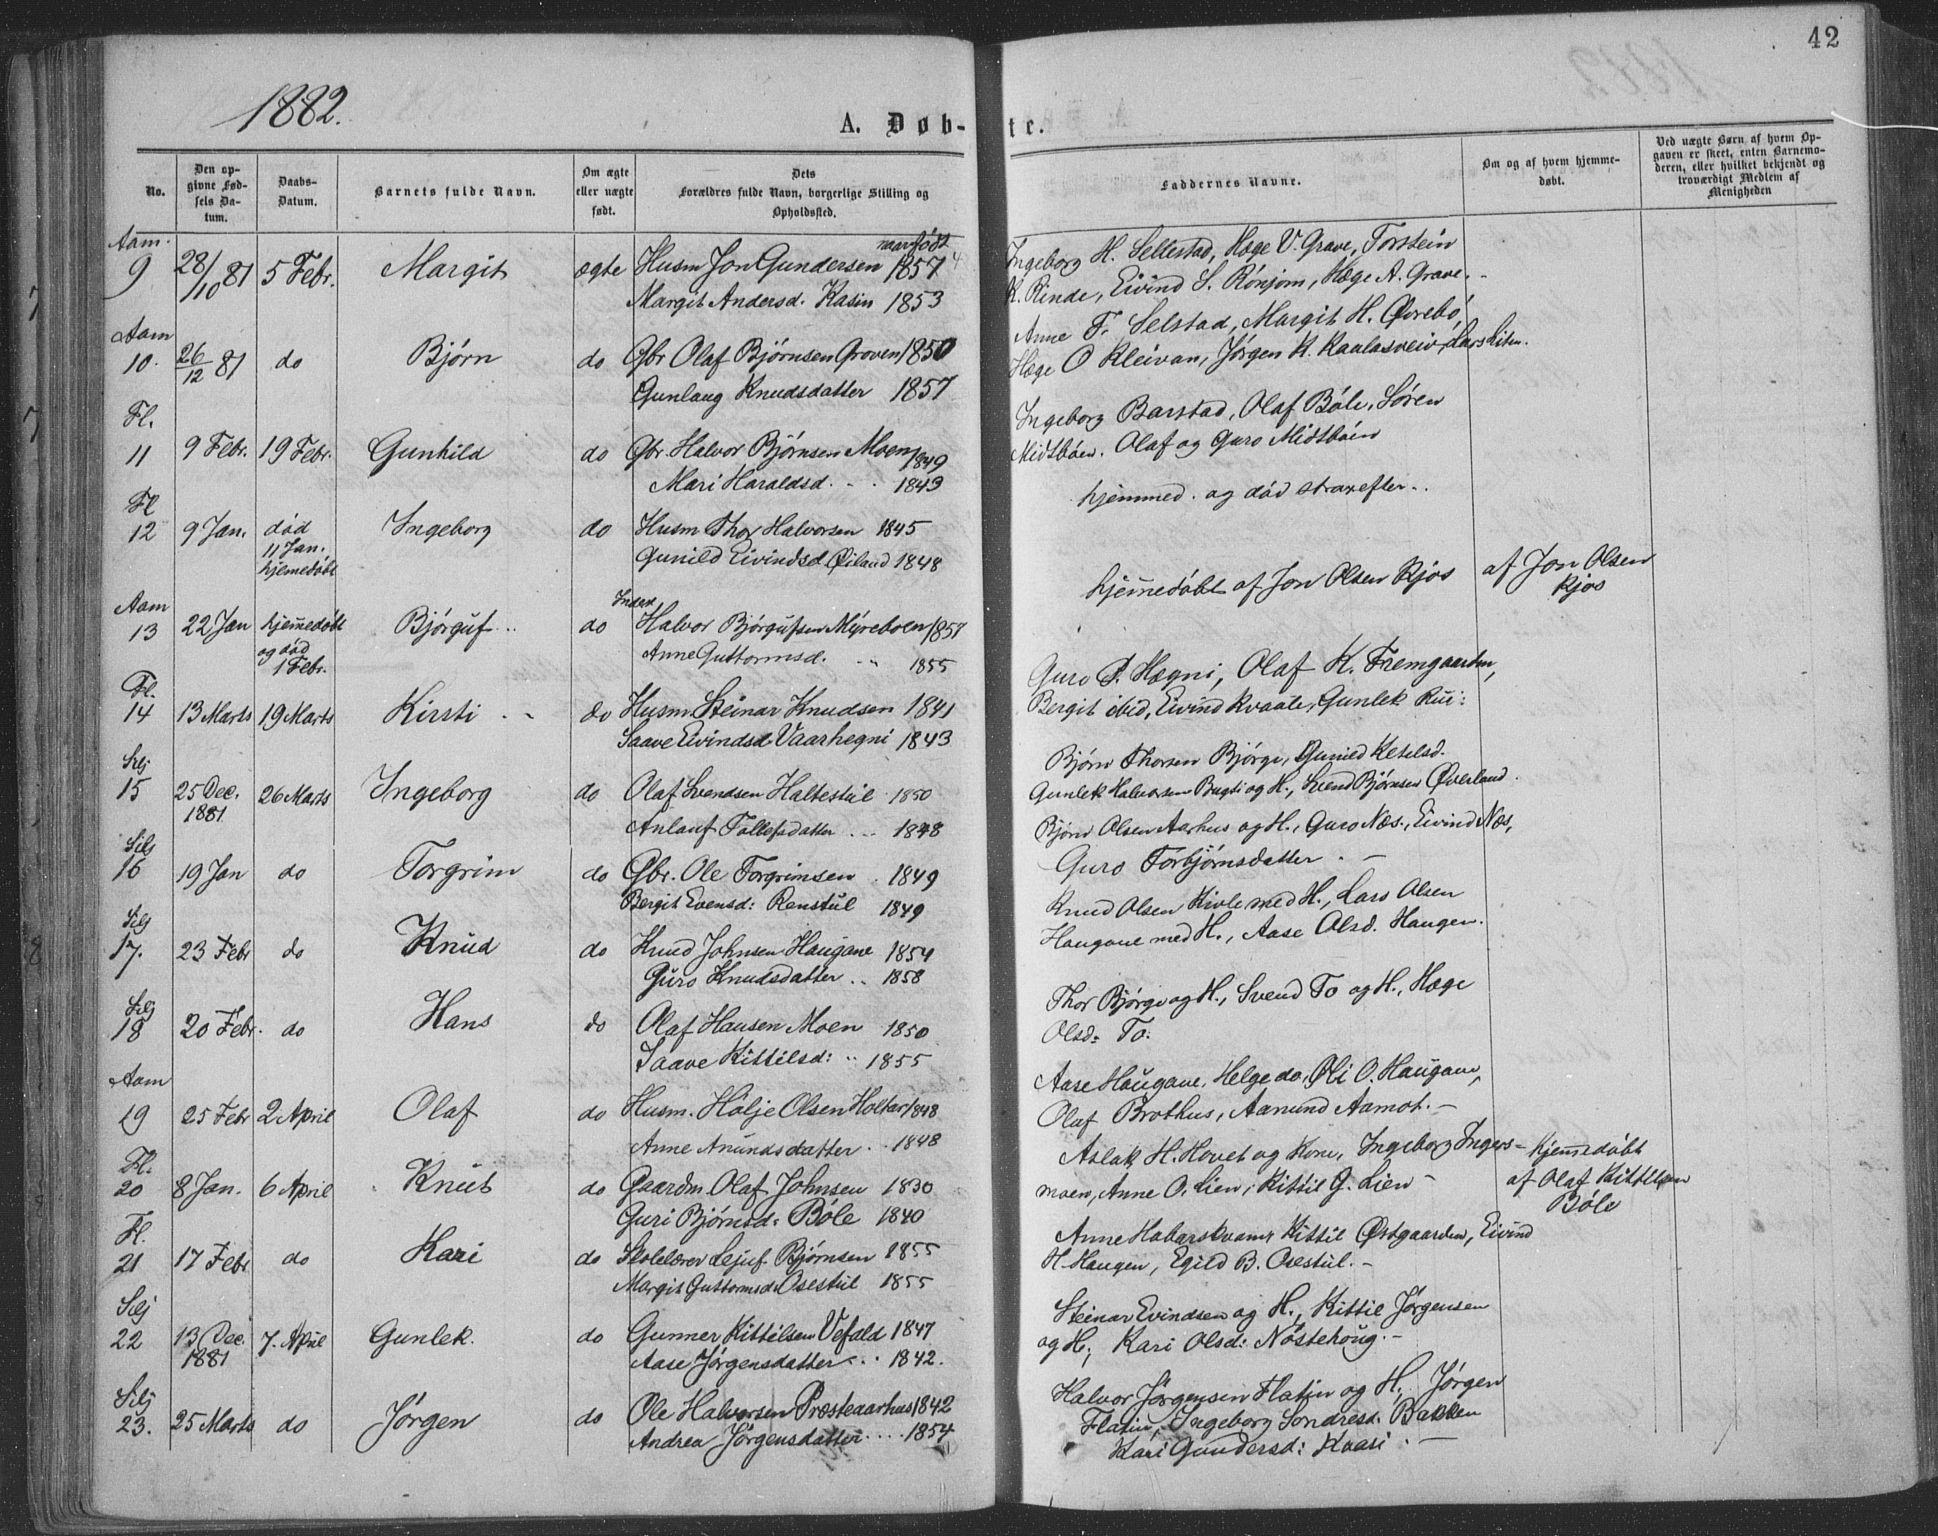 42
1882.
A. Døb-te.
No.
Den op-
givne Fød-
sels Da-
tum.
Daabs-
Datum.
Barnets fulde Navn.
Om ægte
eller uægte
født.
Dets
Forældres fulde Navn, borgerlige Stilling og
Opholdssted.
Faddernes Navne.
Om og af hvem hjemme-
døbt.
Ved uægte Børn af hvem Op-
gaven er skeet, enten Barnemo-
deren, eller hvilket bekjendt og
troværdigt Medlem af
Menigheden
Aam. naar født
9 28/10 81 5 Febr. Margit ægte Husm Jon Gundersen 1857
Margit Andersd. Kasin 1853
Ingeborg H. Sellestad, Hæge V. Grave, Torstein
K. Rinde, Eivind S. Rönjom, Hæge A. Grave.
Aam
10. 26/12 81 do Bjørn do Gbr Olaf Bjørnsen Groven 1850
Gunlaug Knudsdatter 1857
Anne T. Selstad, Margit H. Øvrebö,
Hæge O Kleivan, Jørgen K. Kaalasveiv, Lars Liten.
Fl.
11 9 Febr. 19 Febr. Gunhild do Gbr. Halvor Bjørnsen Moen 1849
Mari Haraldsd. 1843
Ingeborg Barstad, Olaf Böle, Sören
Midtböen. Olaf og Guro Midtböen
Fl
12 9 Jan. död
11 Jan.
hjemedöbt
Ingeborg do Husm Thor Halvorsen 1845
Gunild Eivindsd Öiland 1848
hjemmed. og död straxefter..
Aam
13 22 Jan hjemmedöbt
og död
1 Febr.
Bjørguf.. do Inderst
Halvor Bjørgufsen Myreboen 1857
Anne Guttormsd. 1855
hjemmedöbt af Jon Olsen Kjos af Jon Olsen
Kjos
Fl.
14 13 Marts 19 Marts Kirsti do Husm. Steinar Knudsen 1841
Saave Eivindsd. Vaarhegni 1843
Guro P. Hægni, Olaf K. Fremgaarden,
Bergit ibid, Eivind Kvaale, Gunlek Rui:
Silj
15 25 Dec.
1881
26 Marts Ingeborg do Olaf Svendsen Haltestul 1850
Anlaug Tollefsdatter 1848
Bjørn Thorsen Bjørge, Gunild Ketilsd.
Gunlek Halvorsen Bugti og H., Svend Bjørnsen Øverland.
Silj
16 19 Jan do Torgrim do Gbr. Ole Torgrimsen 1849
Bergit Evensd: Renstul 1849
Bjørn Olsen Aarhus og H., Guro Næs., Eivind Næs,
Guro Torbjørnsdatter.
Silj
17. 23 Febr do Knud do Knud Johnsen Haugane 1854
Guro Knudsdatter 1858
Knud Olsen Kivle med H., Lars Olsen
Haugane med H., Aase Olsd. Haugen.
Silj
18 20 Febr. do Hans do Olaf Hansen Moen 1850
Saave Kittilsd: 1855
Thor Bjørge og H., Svend To og H., Hæge
Olsd: To:
Aam
19 25 Febr 2 April Olaf do Husm. Hölje Olsen Holtar 1848
Anne Anundsdatter 1848
Aase Haugane, Helge do, Oli O. Haugane,
Olaf Brothus, Aanund Aamot.
Fl.
20 8 Jan. 6 April Knut do Gaardm. Olaf Johnsen 1830
Guri Bjørnsd: Böle 1840
Aslak H. Hovet og Kone, Ingeborg Ingers-
moen, Anne O. Lien, Kittil G. Lien
Hjemmedöbt
af Olaf Kittelsen
Böle
Fl.
21 17 Febr do Kari do Skolelærer Lejuf Bjørnsen 1855
Margit Guttormsd: Osestul 1855
Anne Haberskvam, Kittil Østgaarden, Eivind
H. Haugen, Egild B. Osestul.
Silj
22 13 Dec.
1881
7. April Gunlek. do Gunner Kittilsen Vefald 1847
Aase Jørgensdatter 1842.
Steinar Evindsen og H., Kittil Jørgensen
og H., Kari Olsd: Nöstehoug.
Silj
23. 25 Marts do Jørgen do Ole Halvorsen Præsteaarhus 1842
Andrea Jørgensdatter 1854
Halvor Jørgensen Flatin og H., Jørgen
Flatin, Ingeborg Sondresd. Bakken
Kari Gundersd: Kaasi.